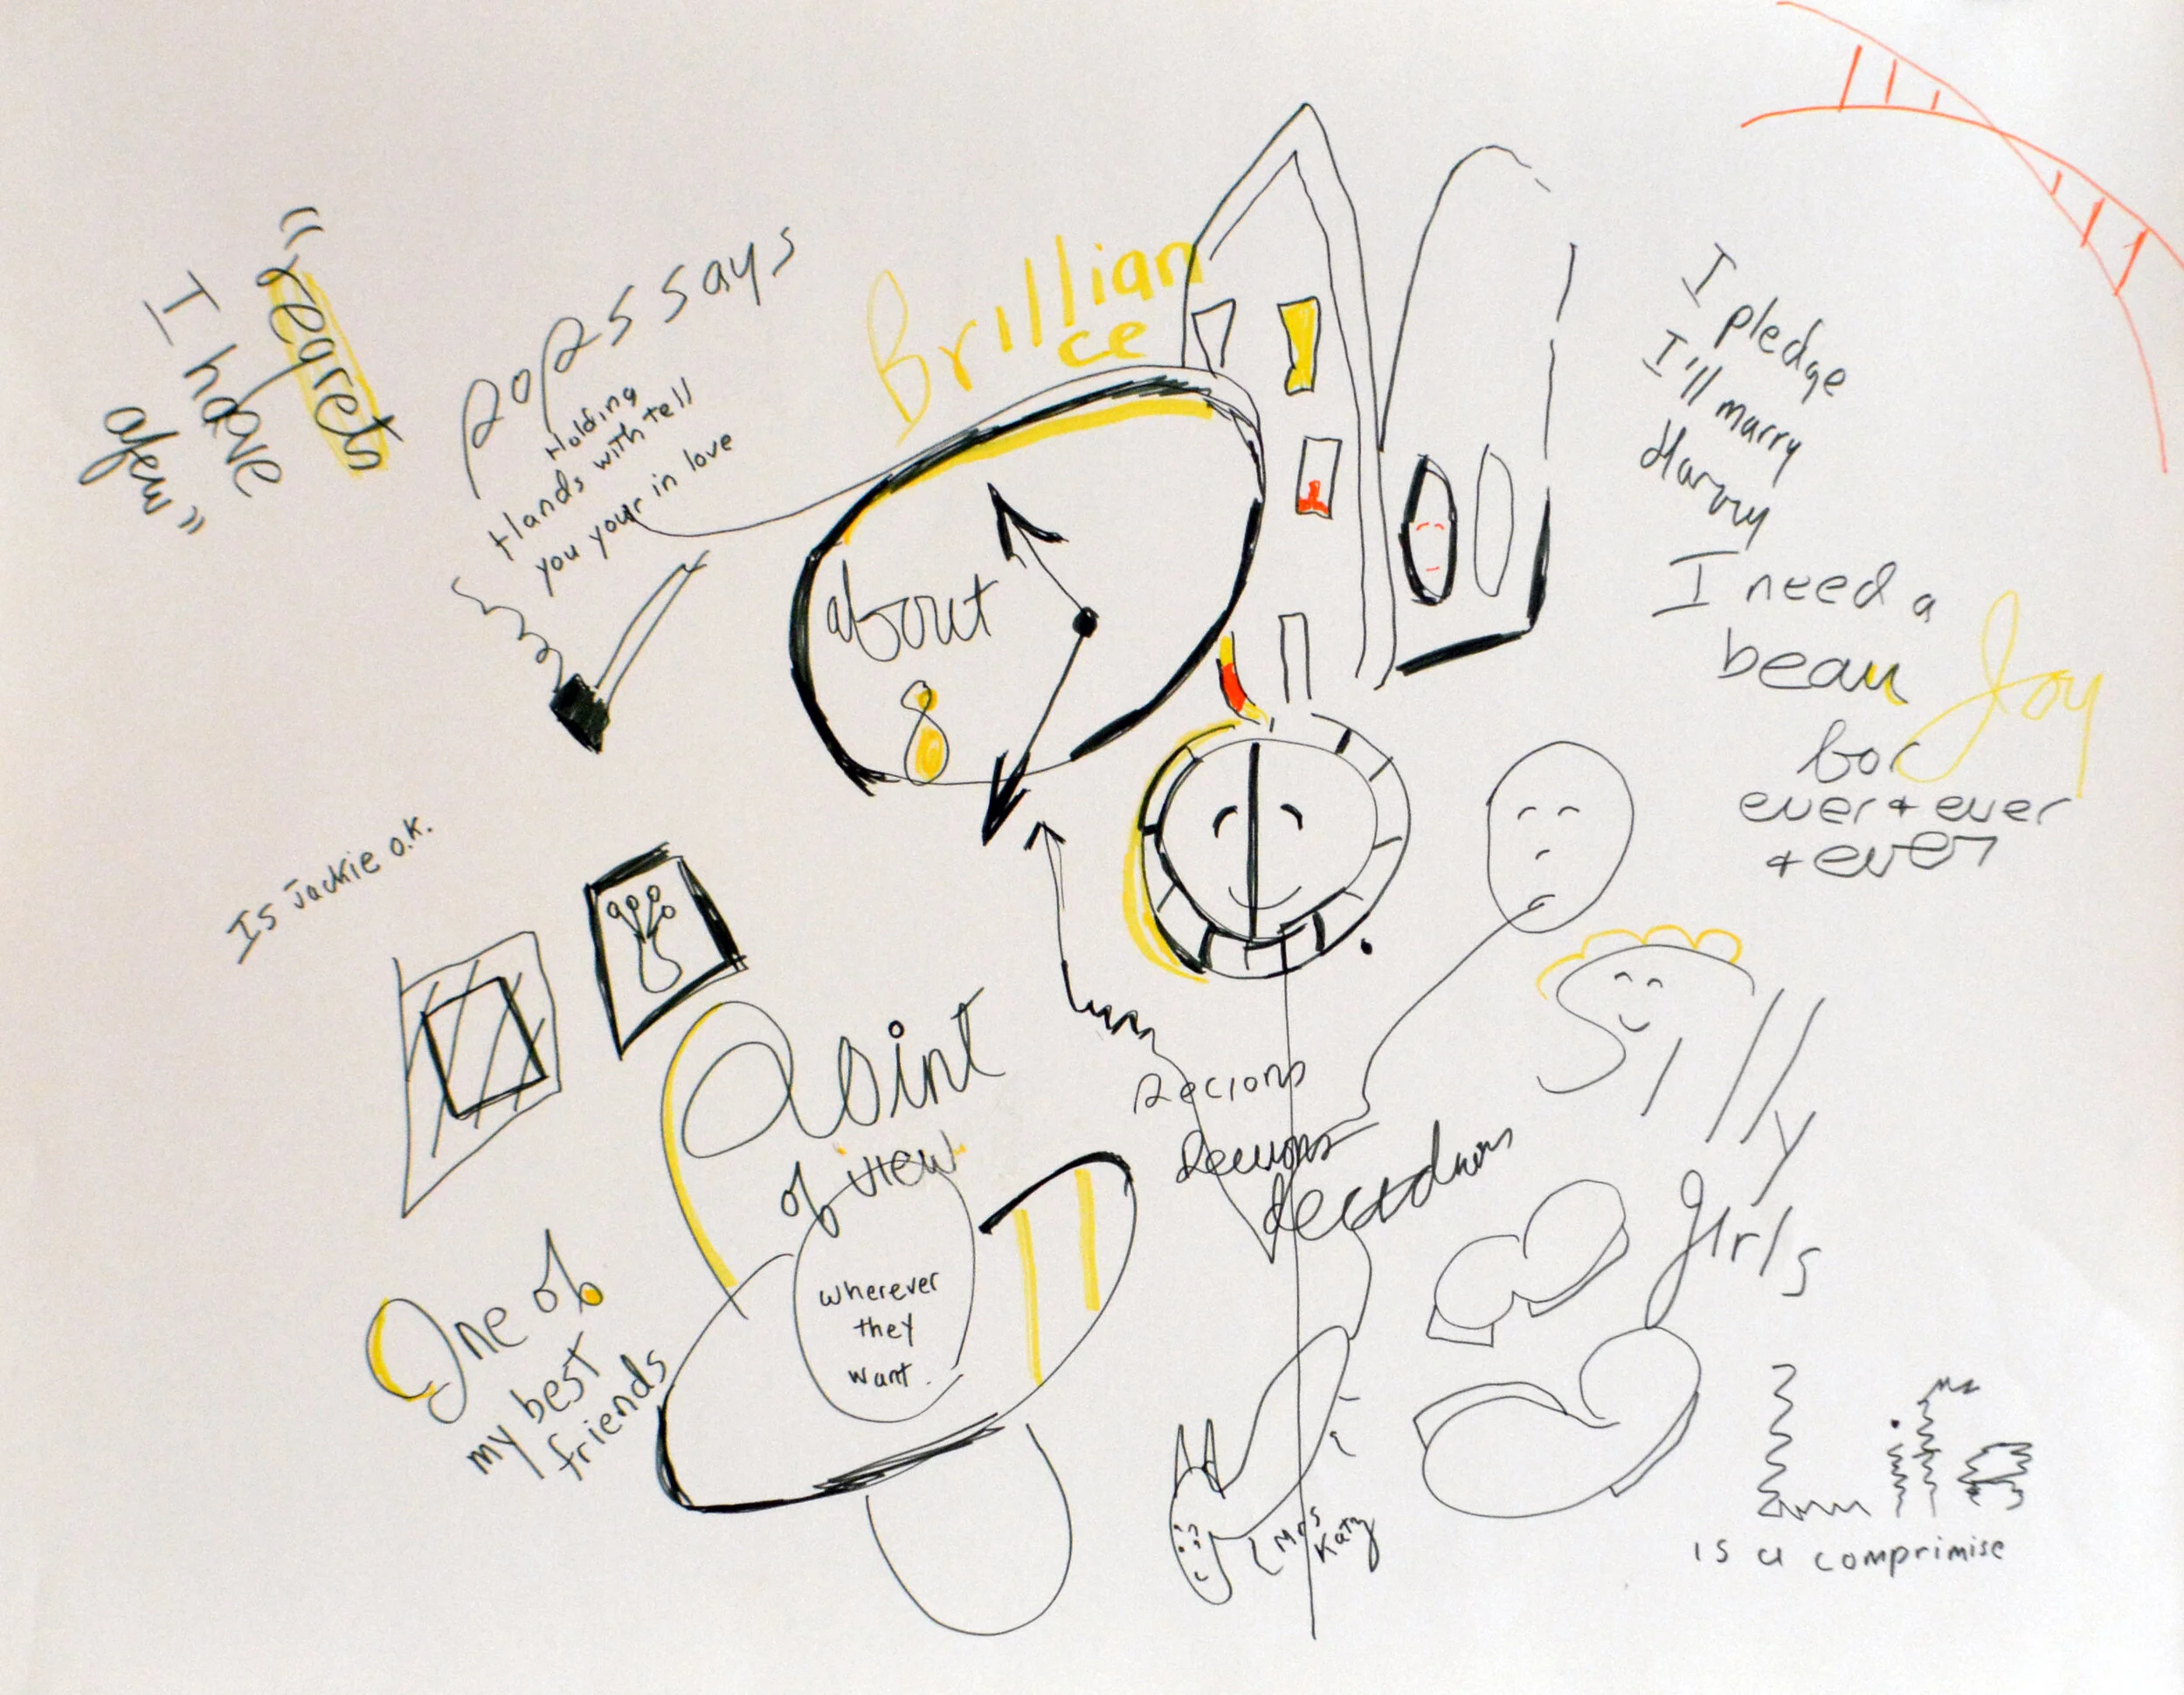 "regrets
I have
a few"
pops says
Holding
Hands with tell
you your in love
Brillian
ce
about
8
I pledge
I'll marry
Harry
I need a
beau
Joy
for
ever + ever
+ ever
Is Jackie o.k.
Point
of view
wherever
they
want.
One of
my best
friends
Silly
girls
Mrs
Katz
Life
is a comprimise